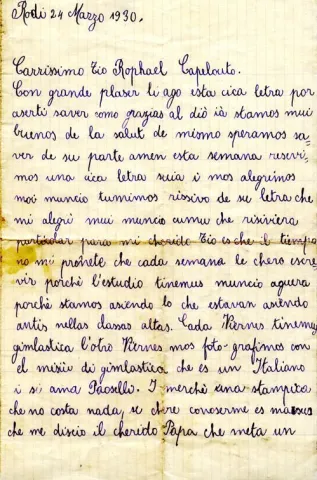 Rodi 24 Marzo 1930.
Carrissimo tio Rophael Capelouto.
Con grande plaser li ago esta cica letra por
aserti saver como grazias al diò ià stamos mui
buenos de la salut de mismo speramos sa=
ver de su parte amen esta semana resevi=
mos una cica letra suia i mos alegrimos
moi muncio tumimos rissivo de su letra che
mi alegrì mui muncio cumu che risiviera
particolar para mi cherido tio es che il tiempo
no mi promete che cada semana le chero escre
vir porchè l'estudio tinemus muncio aguera
porchè stamos asiendo lo che estavan asiendo
antis nellas classas altas. Cada Viernes tinemus
gimlastica l'otro Viernes mos foto-grafimos con
el misiù di gimlastica che es un Italiano
i si ama Paoselli. I merchè una stampica
che no costa nada, se chere conoserme es
che me discio il cherido Papa che meta un